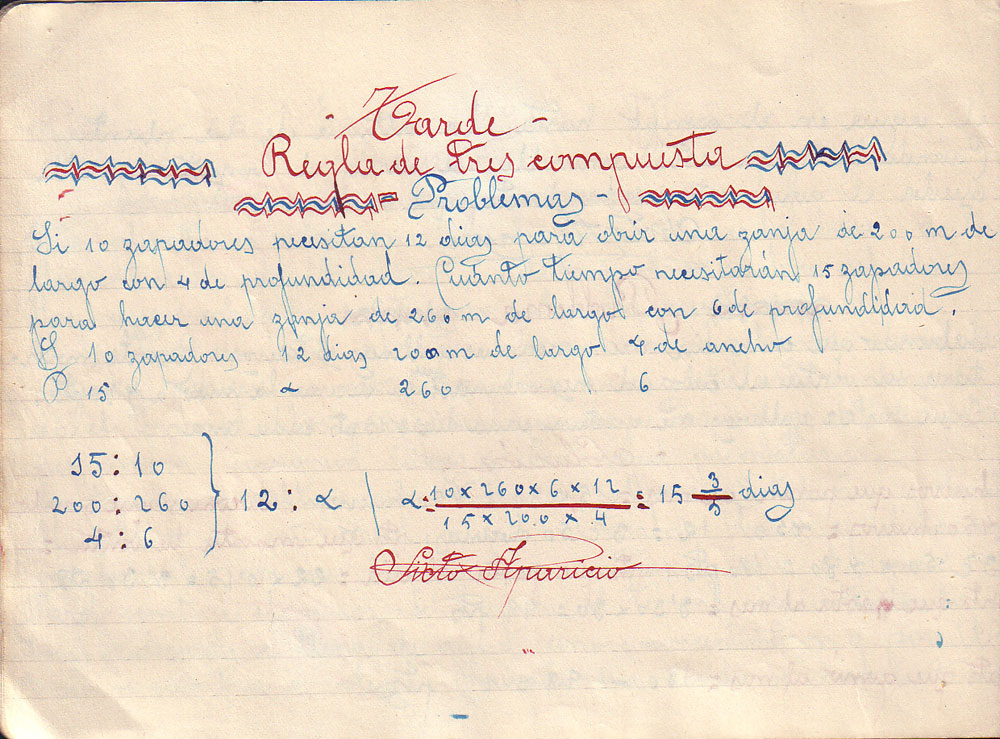 Tarde -
Regla de tres compuesta
= Problemas -
Si 10 zapadores necesitan 12 dias para abrir una zanja de 200 m de
largo con 4 de profundidad. Cuánto tiempo necesitarán 15 zapadores
para hacer una zanja de 260 m de largo con 6 de profundidad.
S 10 zapadores 12 dias 200 m de largo 4 de ancho
P 15 x 260 6
15 : 10
200 : 260 } 12 : x | x = 10 x 260 x 6 x 12 / 15 x 200 x 4 = 15 3/5 dias
4 : 6
Sixto Aparicio